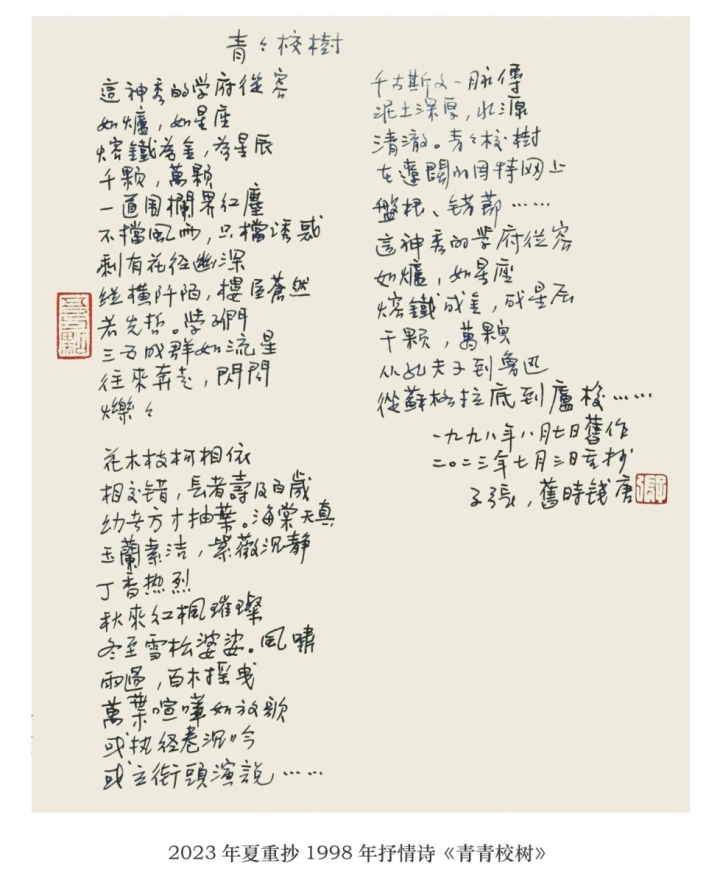 青々校樹
這神秀的学府從容
如爐，如星座
熔鐵為金，為星辰
千顆，萬顆
一道围欄界红塵
不擋風雨，只擋诱惑
剩有花径幽深
纵橫阡陌，樓屋蒼然
若先哲。學子們
三五成群如流星
往來奔走，閃閃
爍々
花木枝柯相依
相交錯，長者壽及百歲
幼者方才抽葉。海棠天真
玉蘭素洁，紫薇沉静
丁香热烈
秋來红楓璀璨
冬至雪松婆娑。風嘯
雨過，百木摇曳
萬葉喧嘩如放歌
或执经卷沉吟
或立街頭演說……
千古斯文一脉傳
泥土深厚，水源
清澈。青々校樹
在遼闊的因特网上
盤根、错節……
這神秀的学府從容
如爐，如星座
熔鐵成金，成星辰
千顆，萬顆
从孔夫子到魯迅
從蘇格拉底到盧梭……
一九九八年八月七日舊作
二〇二三年七月三日重抄
子張，舊時钱唐
2023 年夏重抄 1998 年抒情诗《青青校树》